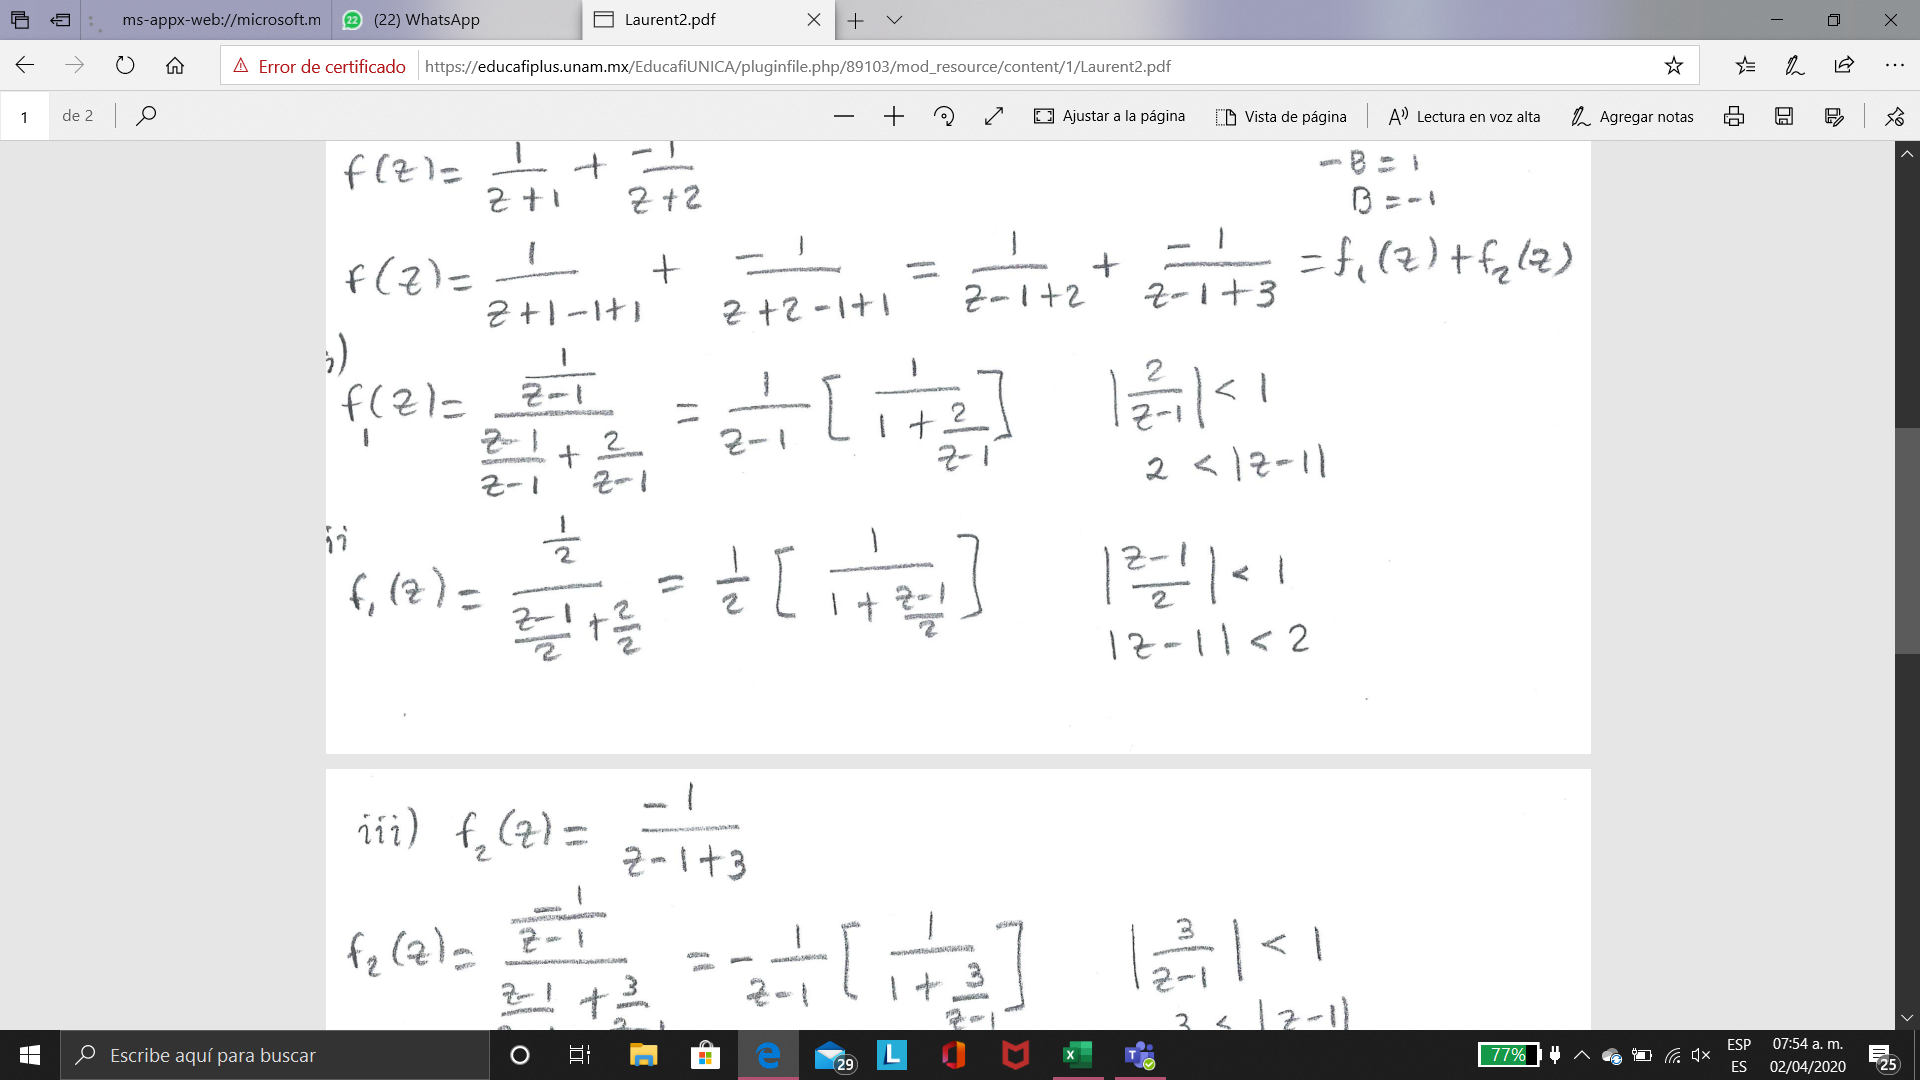 ms-appx-web://microsoft.m
22 (22) WhatsApp
Laurent2.pdf
Error de certificado
https://educafiplus.unam.mx/EducafiUNICA/pluginfile.php/89103/mod_resource/content/1/Laurent2.pdf
1 de 2
Ajustar a la página
Vista de página
Lectura en voz alta
Agregar notas
f(z) = 1/(z+1) + -1/(z+2)
-B = 1
B = -1
f(z) = 1/(z+1-1+1) + -1/(z+2-1+1) = 1/(z-1+2) + -1/(z-1+3) = f₁(z) + f₂(z)
i)
f₁(z) = (1/(z-1))/((z-1)/(z-1) + 2/(z-1)) = 1/(z-1) [1/(1 + 2/(z-1))] |2/(z-1)| < 1
2 < |z-1|
ii
f₁(z) = (1/2)/((z-1)/2 + 2/2) = 1/2 [1/(1 + (z-1)/2)] |(z-1)/2| < 1
|z-1| < 2
iii) f₂(z) = -1/(z-1+3)
f₂(z) = (-1/(z-1))/((z-1)/(z-1) + 3/(z-1)) = -1/(z-1) [1/(1 + 3/(z-1))] |3/(z-1)| < 1
3 < |z-1|
Escribe aquí para buscar
29
77%
ESP
ES
07:54 a. m.
02/04/2020
25